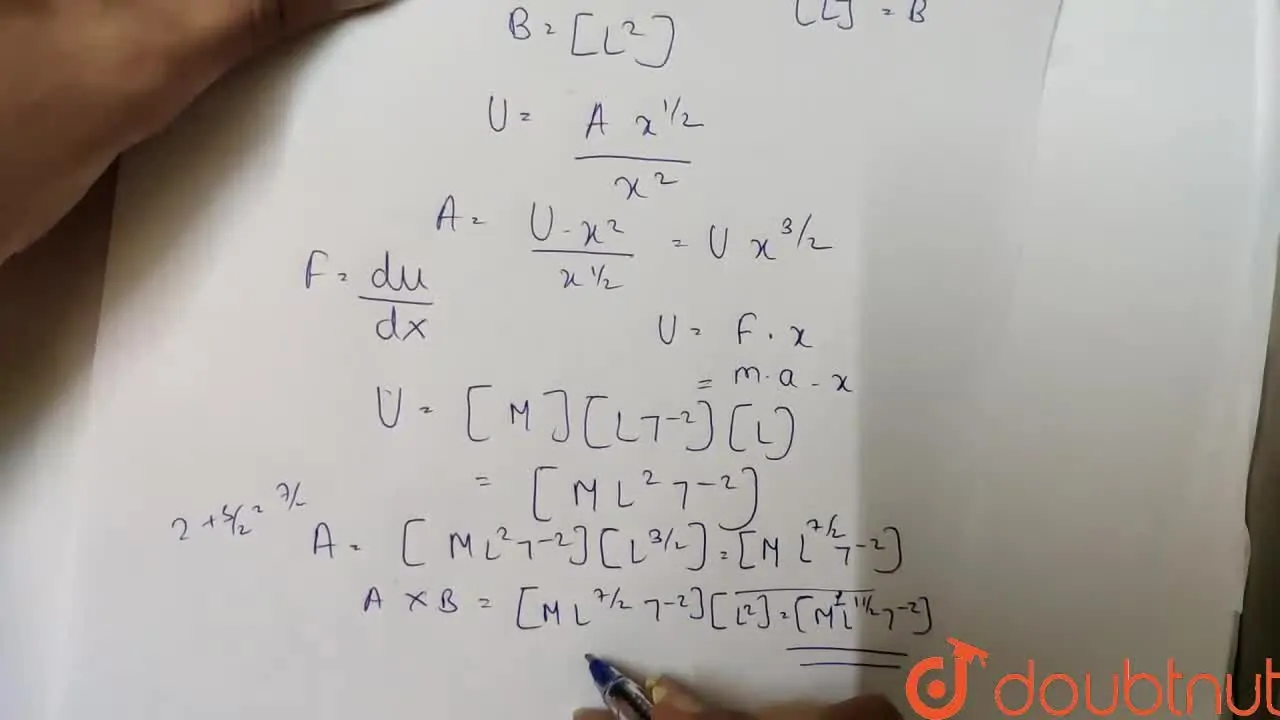 B = [L²]
[L] = B
U = A x^1/2 / x²
A = U - x² / x^1/2 = U x^3/2
F = du / dx
U = F . x
= m.a - x
U = [M] [LT^-2] [L]
= [ML²T^-2]
2 + 3/2 = 7/2
A = [ML²T^-2] [L^3/2] = [ML^7/2 T^-2]
A × B = [ML^7/2 T^-2] [L²] = [M L^11/2 T^-2]
doubtnut